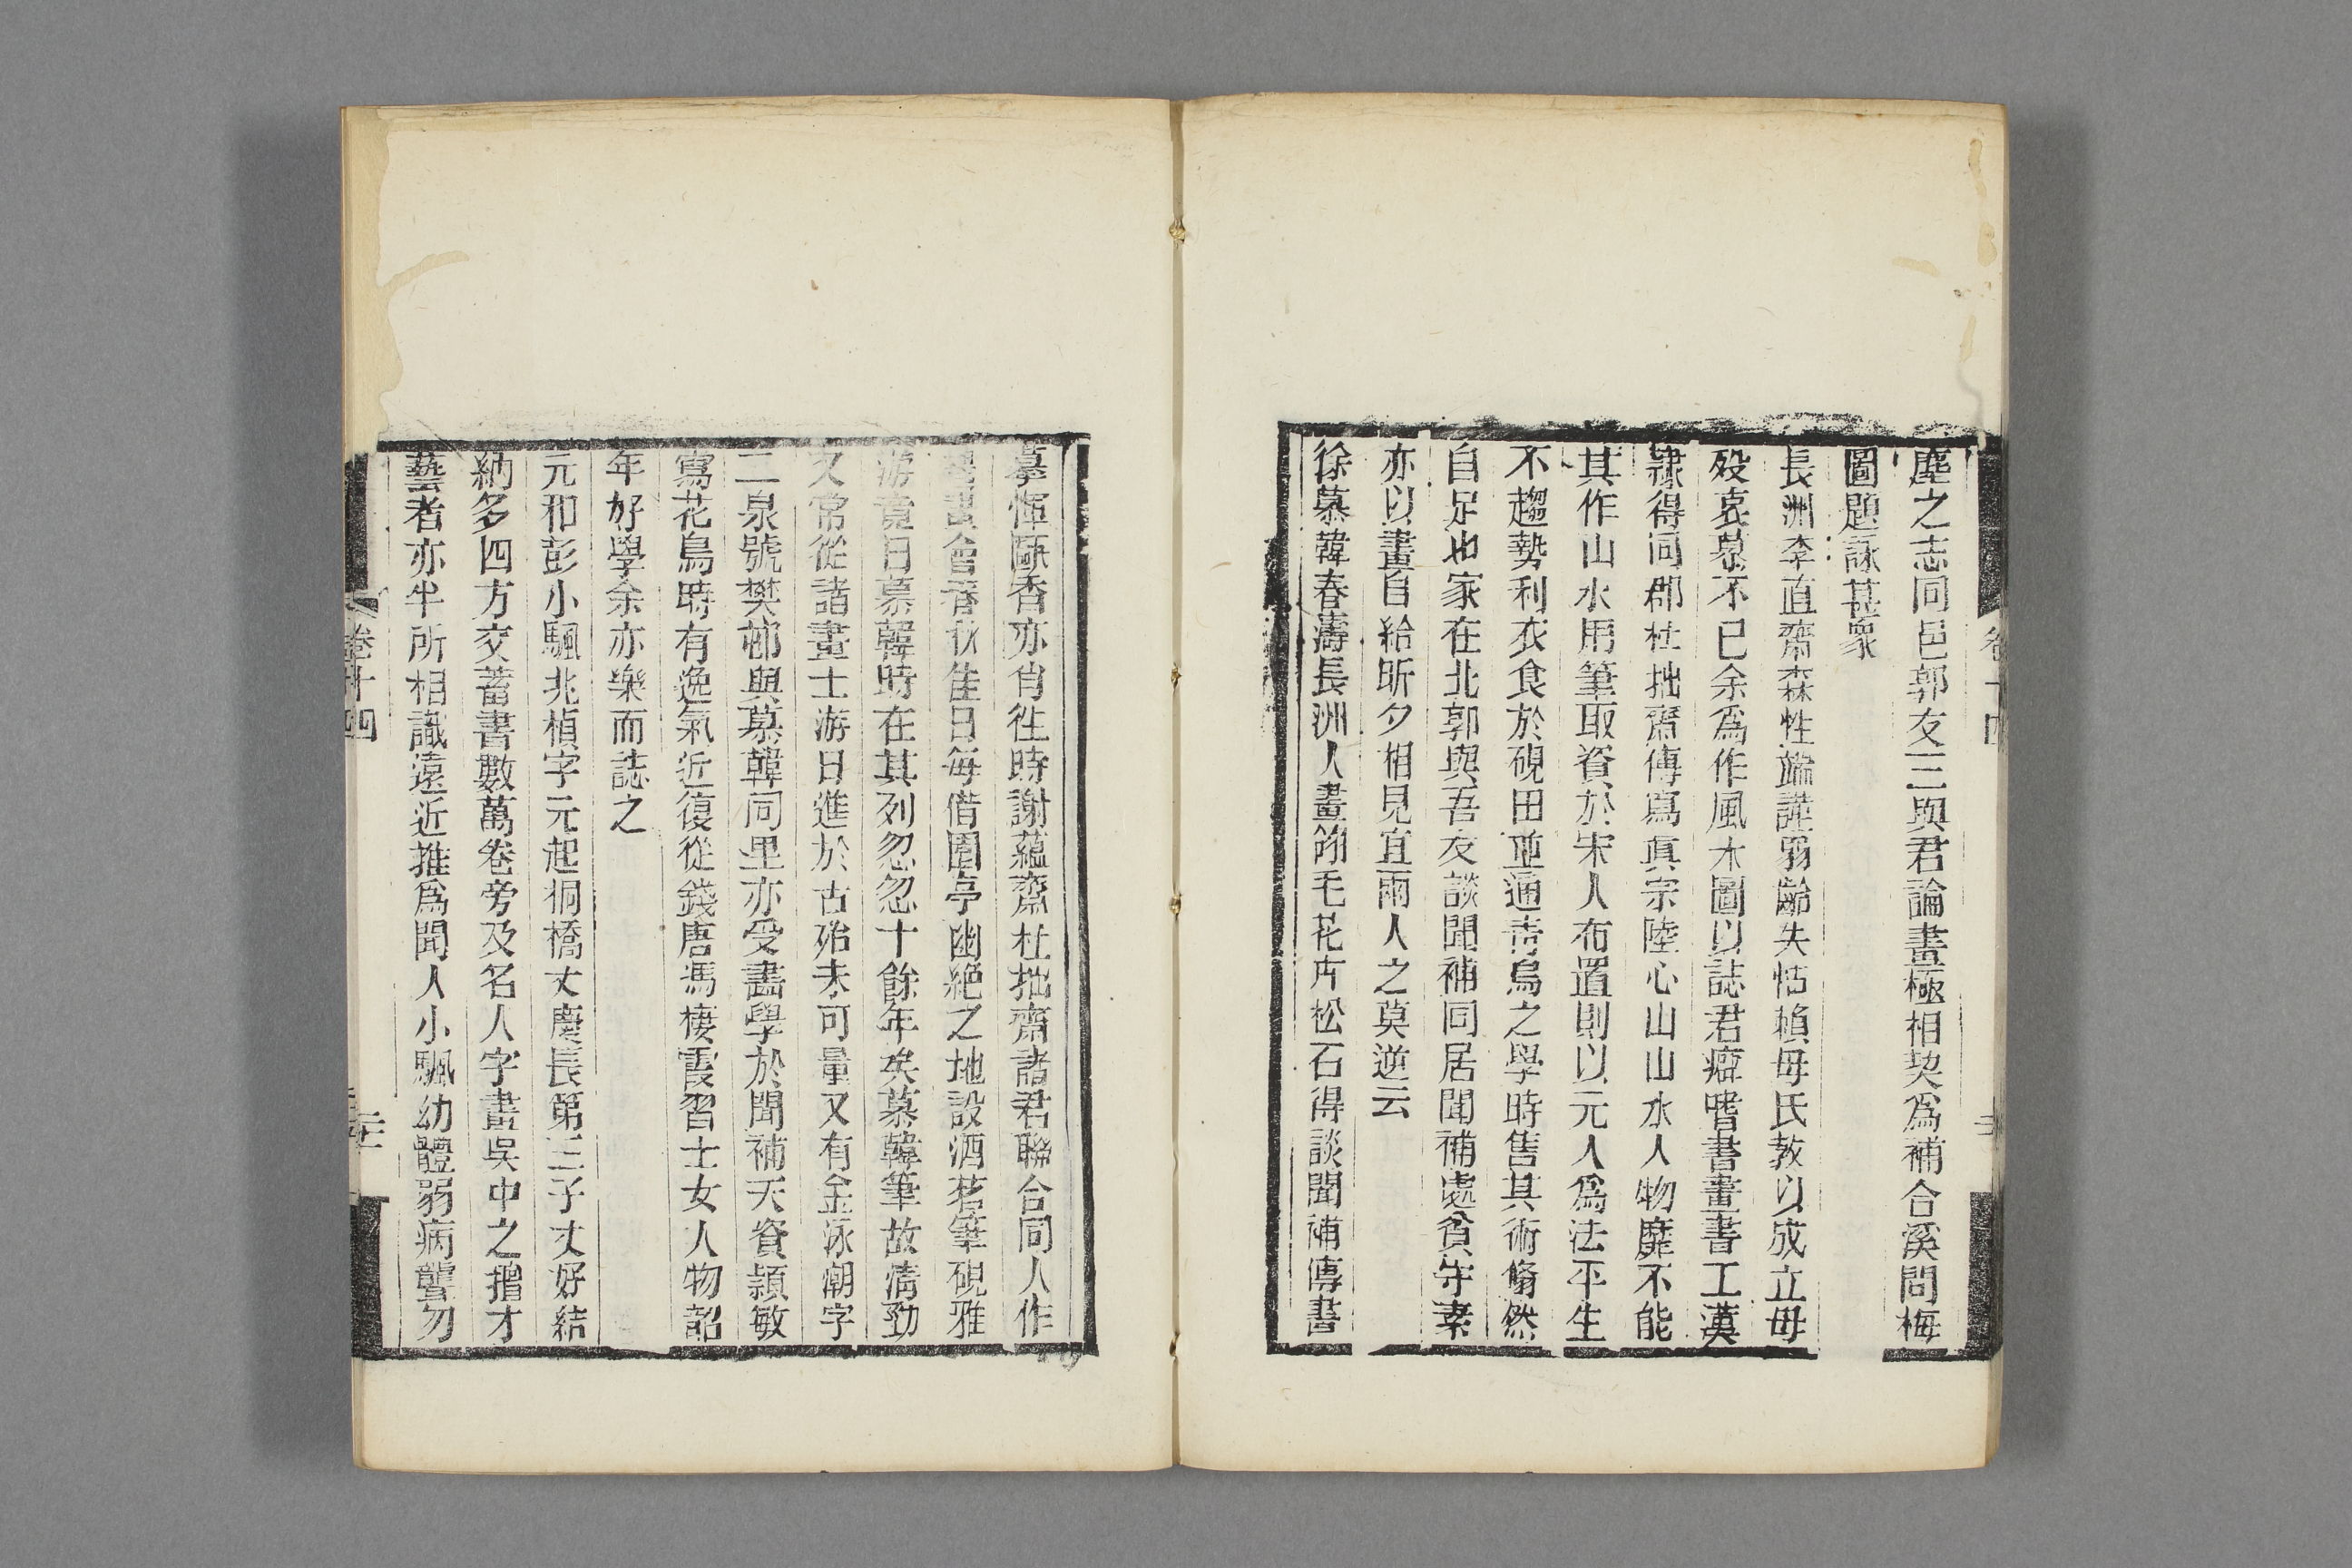 塵之志同邑郭友三與君論畫極相契爲補合溪問梅
圖題詠甚衆
長洲李直齋森性端謹弱齡失怙賴母氏教以成立母
歿哀慕不已余爲作風木圖以誌君癖嗜書畫書工漢
隸得同郡杜拙齋傳寫眞宗陸心山山水人物靡不能
其作山水用筆取資於宋人布置則以元人爲法平生
不趨勢利衣食於硯田並通靑烏之學時售其術翛然
自足也家在北郭與吾友談聞補同居聞補處貧守素
亦以畫自給昕夕相見宜兩人之莫逆云
徐慕韓春濤長洲人畫翎毛花卉松石得談聞補傳書
摹惲甌香亦肖往時謝蘊齋杜拙齋諸君聯合同人作
畫會春秋佳日每借園亭幽絶之地設酒茗筆硯雅
游竟日慕韓時在其列忽忽十餘年矣慕韓筆故淸勁
又常從諸畫士游日進於古殆未可量又有金泳潮字
二泉號樊邨與慕韓同里亦受畵學於聞補天資頴敏
寫花鳥時有逸氣近復從錢唐馮棲霞習士女人物韶
年好學余亦樂而誌之
元和彭小颿兆楨字元起桐橋丈慶長第三子丈好結
納多四方交蓄書數萬卷旁及名人字畫吳中之擅才
藝者亦半所相識遠近推爲聞人小颿幼體弱病聾勿
卷十四